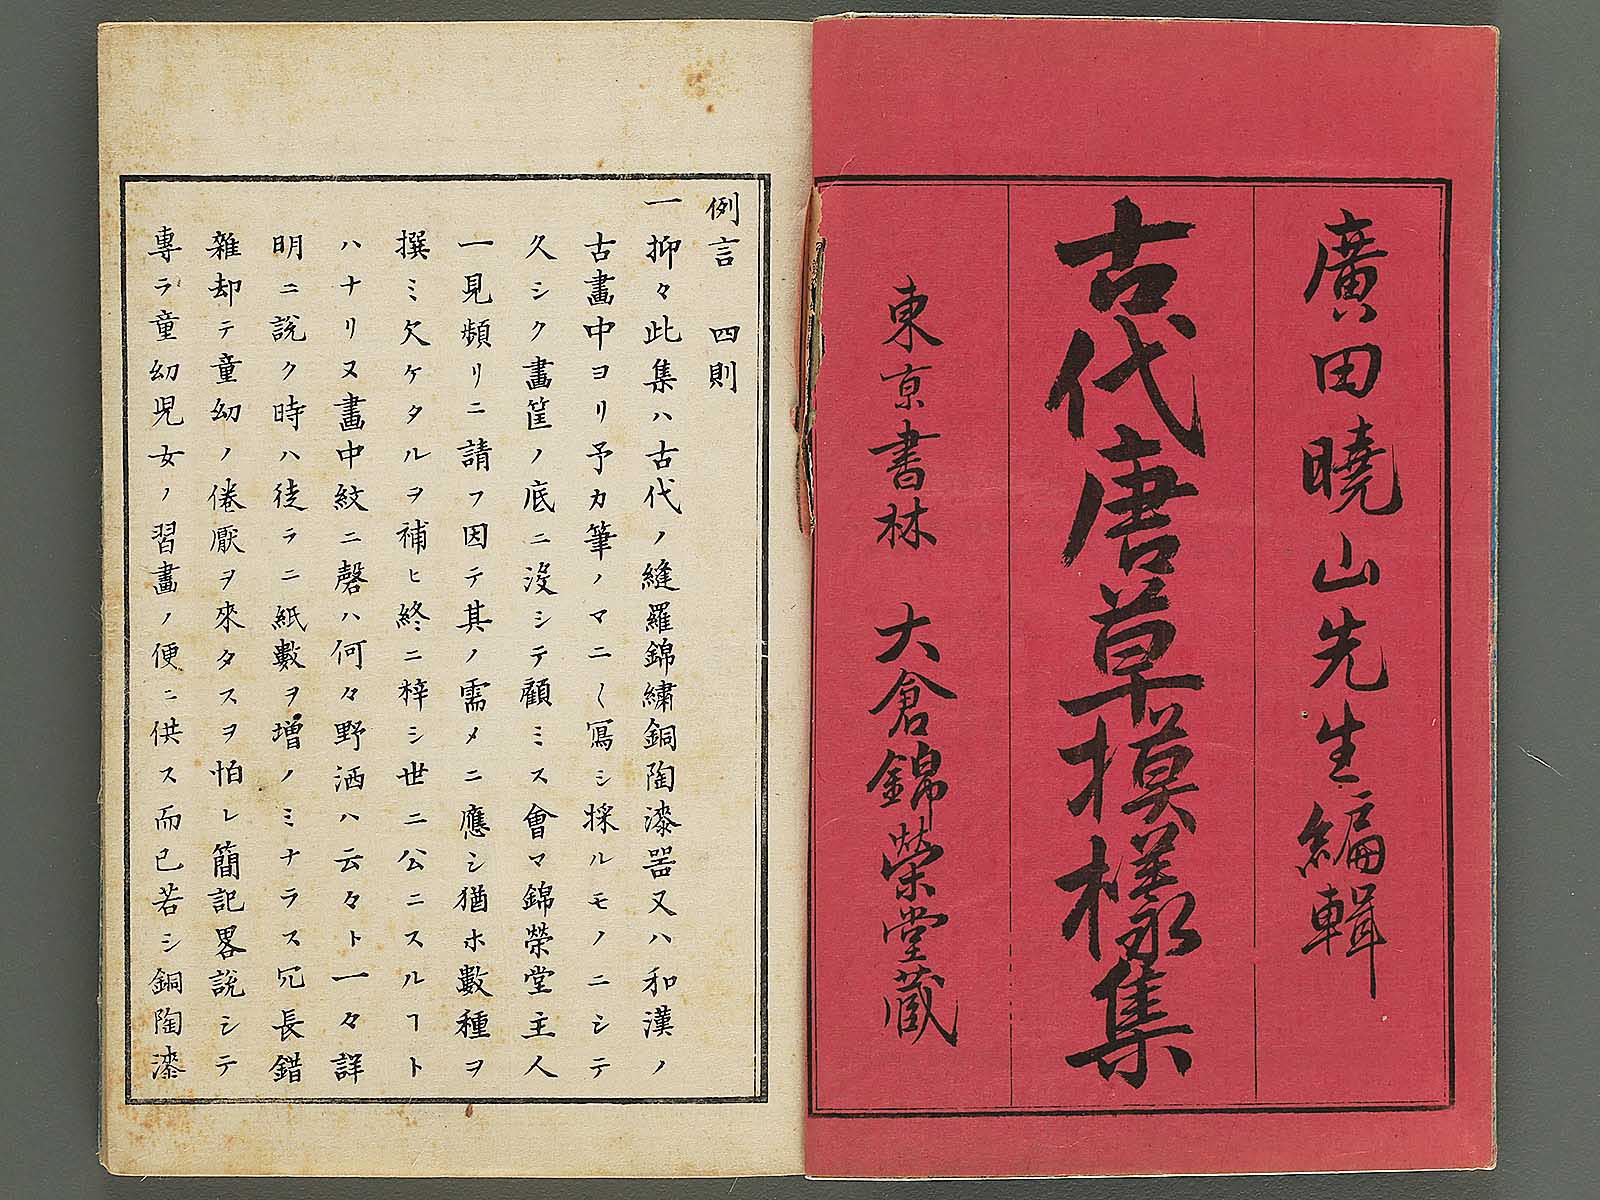 廣田曉山先生編輯
古代唐草摸樣集
東京書林　大倉錦榮堂蔵
例言　四則
一抑々此集ハ古代ノ縫羅錦繍銅陶漆器又ハ和漢ノ
古畫中ヨリ予カ筆ノマニ〱冩シ採ルモノニシテ
久シク畫筐ノ底ニ没シテ顧ミス會マ錦榮堂主人
一見頻リニ請フ因テ其ノ需メニ應シ猶ホ數種ヲ
撰ミ欠ケタルヲ補ヒ終ニ梓シ世ニ公ニスルヿト
ハナリヌ畫中紋ニ磬ハ何々野洒ハ云々ト一々詳
明ニ説ク時ハ徒ラニ紙數ヲ増ノミナラス冗長錯
雜却テ童幼ノ倦厭ヲ來タスヲ怕レ簡記畧説シテ
專ラ童幼児女ノ習畫ノ便ニ供ス而已若シ銅陶漆